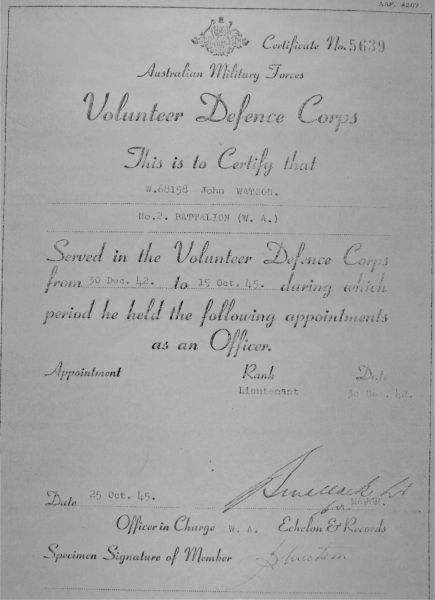 AAF. A207
Certificate No. 5639
Australian Military Forces
Volunteer Defence Corps
This is to Certify that
W.68158 John WATSON.
No.2. BATTALION (W. A.)
Served in the Volunteer Defence Corps
from 30 Dec. 42. to 15 Oct. 45. during which
period he held the following appointments
as an Officer.
Appointment Rank Date
Lieutenant 30 Dec. 42.
Date 25 Oct. 45.
Officer in Charge W. A. Echelon & Records
Specimen Signature of Member